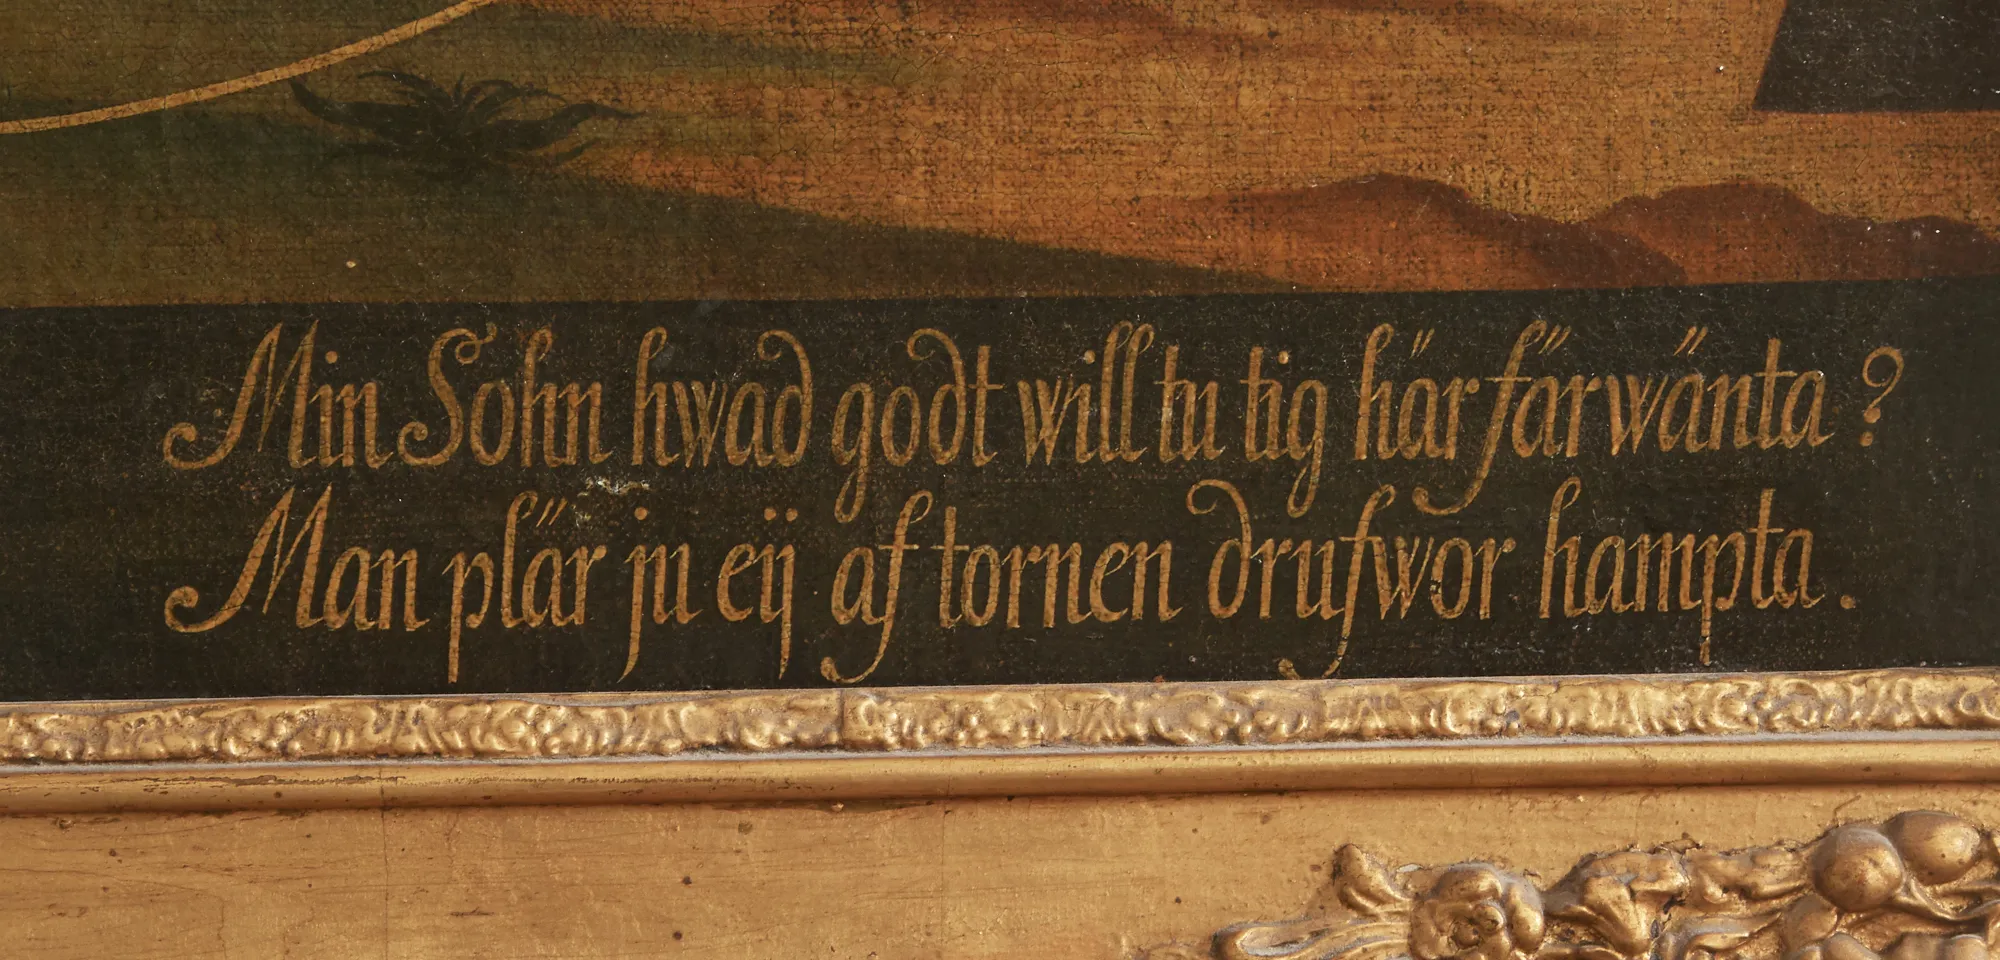 Min Sohn hwad godt will tu tig här färwänta?
Man plär ju eÿ af tornen drufwor hampta.